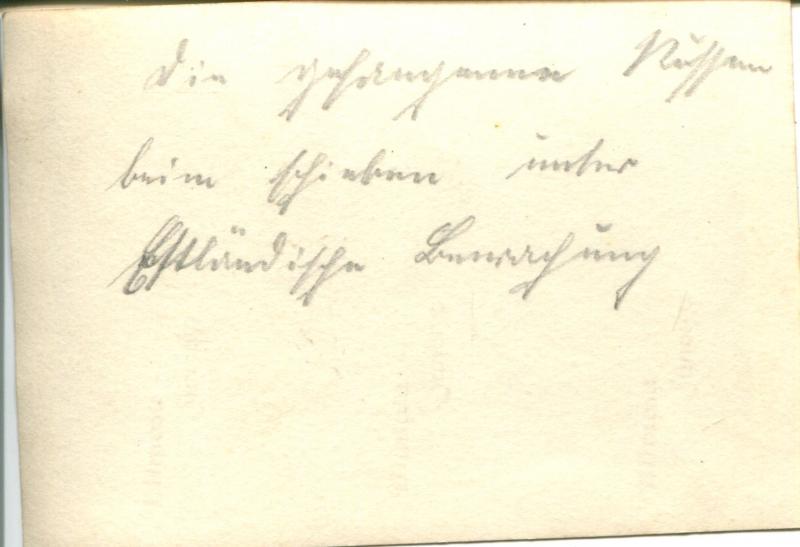 Die gefangenen Russen
beim schieben unter
Estländische Bewachung